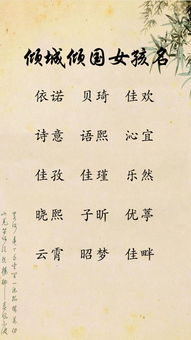 倾城倾国女孩名
依诺 贝琦 佳欢
诗意 语熙 沁宜
佳孜 佳瑾 乐然
晓熙 子昕 优葶
云霄 昭梦 佳畔